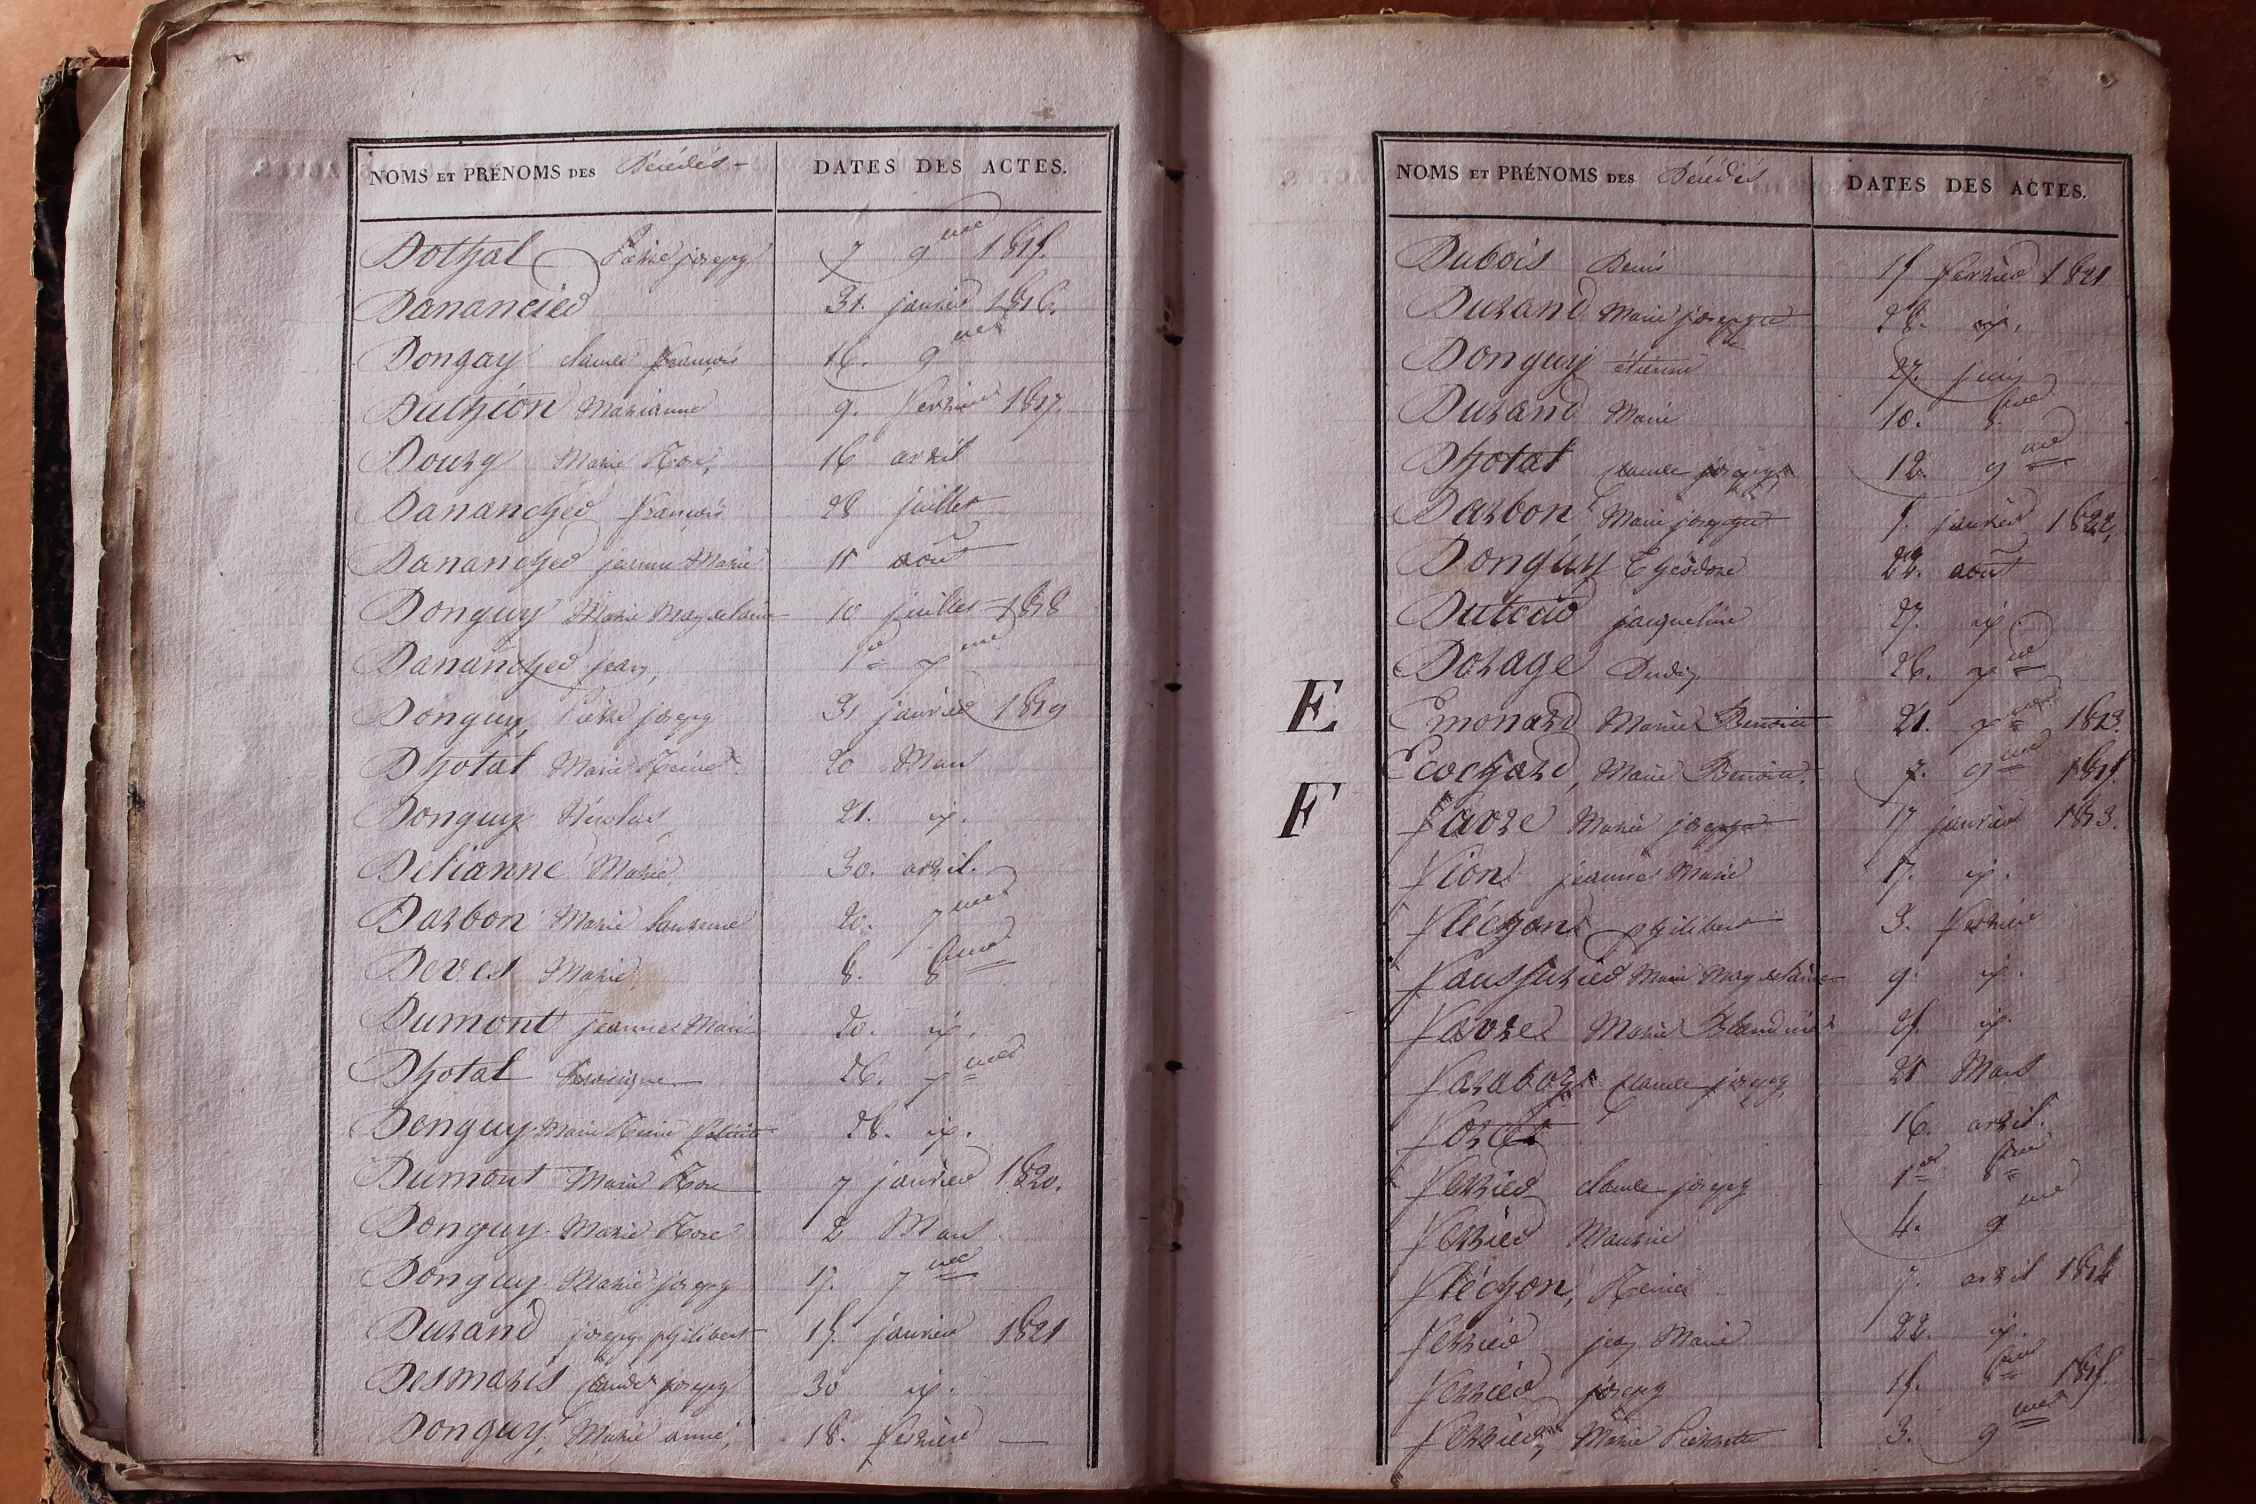 NOMS ET PRÉNOMS DES Décédés DATES DES ACTES.
Dothal Pierre joseph 7 9bre 1815.
Danancier 31. janvier 1816.
Donguy claude françois 16. 9bre
Duthion Marianne 9. fevrier 1817.
Dourg Marie Rose, 16 avril
Dananched françois 28 juillet
Dananched jeanne Marie 15 août
Donguy Marie Magdelaine 10 juillet 1818
Dananched jean, 1er 7bre
Donguy, Pierre joseph 31 janvier 1819
Dhotal Marie Reine 20 Mars
Donguy Nicolas 21. id.
Delianne Marie 30. avril.
Darbon Marie Laurence 20. 7bre
Devest Marie 8. 8bre
Dumont jeanne Marie 20. id.
Dhotal 26. 7bre
Donguy Marie Reine 28. id.
Dumont Marie Rose 7 janvier 1820.
Donguy Marie Rose 2 Mars
Donguy Marie joseph 17. 7bre
Durand joseph philibert 15. janvier 1821
Desmaris claude joseph 30 id.
Donguy, Marie anne, 18. fevrier
NOMS ET PRÉNOMS DES Décédés DATES DES ACTES.
Dubois Denis 15 fevrier 1821
Durand Marie josephte 28. id.
Donguy étienne 27. juin
Durand Marie 10. 8bre
Dhotal claude joseph 12. 9bre
Darbon Marie josephte 5. janvier 1822,
Donguy Théodore 22. août
Dutoid jacqueline 27. id.
Dorage 26. 7bre
E
Emonard Marie Benoite 21. 7bre 1813.
Ecochard, Marie Benoite. 7. 9bre 1815.
F
favre Marie josephte 17 janvier 1813.
fion jeanne Marie 17. id.
fléchon philibert 3. fevrier
fausfurier Marie Magdelaine 9. id.
favre Marie Claudine 25. id.
faraboz claude joseph 21 Mars
16. avril.
ferrier claude joseph 1er 8bre
ferrier Maurice 4. 9bre
fléchon, Reine 7. avril 1814
ferrier jean Marie 22. id.
ferrier joseph 15. 8bre 1815.
ferrier, Marie Pierrette 3. 9bre